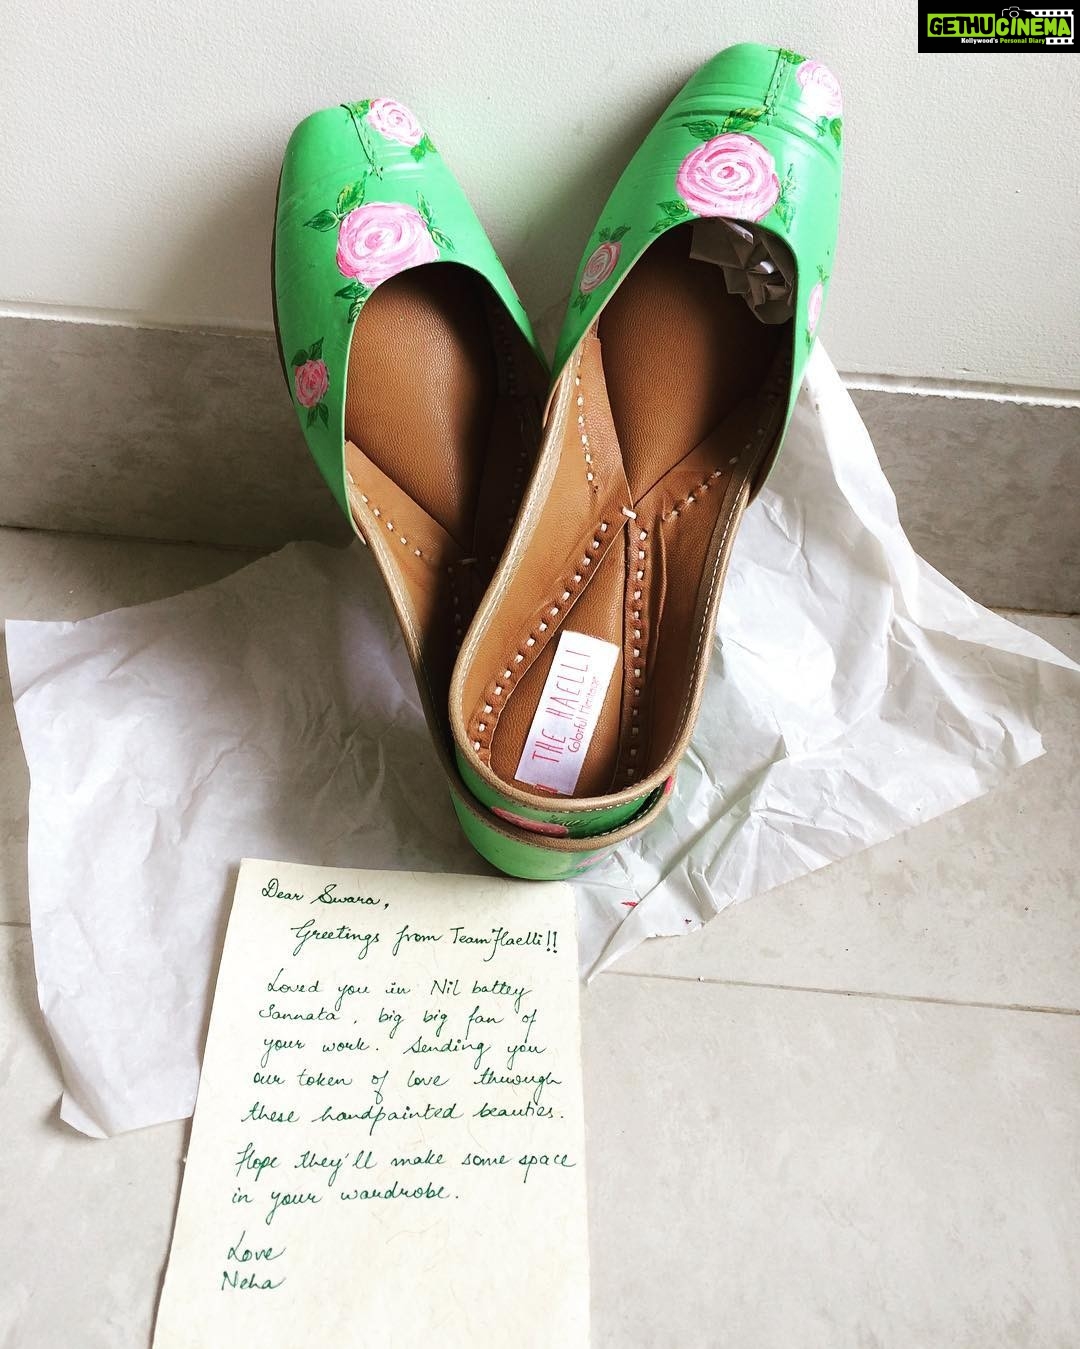 GETHUCINEMA
Kollywood's Personal Diary
THE HAELLI
Colorful Heritage
Dear Swara,
Greetings from Team Haelli!!
Loved you in Nil battey
Sannata, big big fan of
your work. Sending you
our token of love through
these handpainted beauties.
Hope they'll make some space
in your wardrobe.
Love
Neha